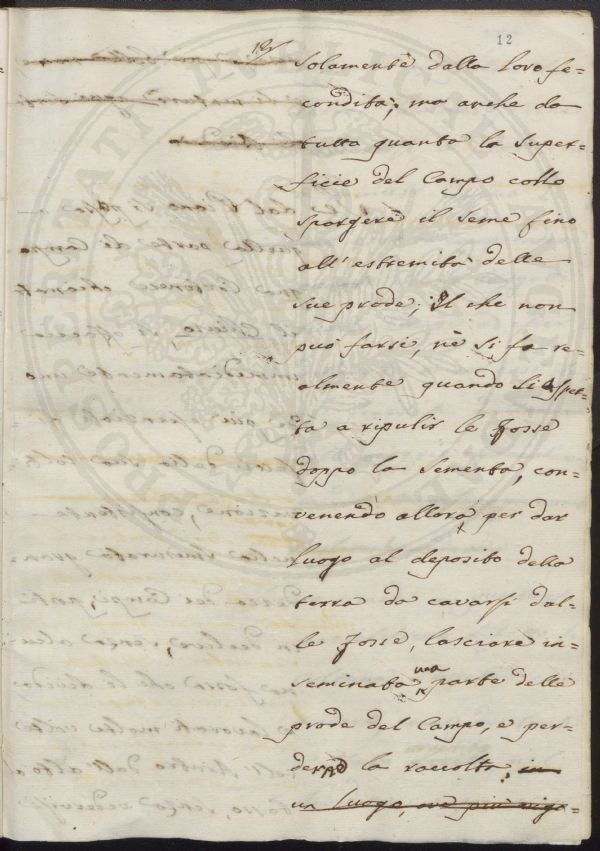 12
solamente dalla loro fe=
condità; ma anche da
tutta quanta la super=
ficie del Campo collo
spargere il seme fino
all'estremità delle
sue prode; Il che non
può farsi, nè si fa re=
almente quando si aspet=
ta a ripulir le Fosse
doppo la sementa, con=
venendo allora, per dar
luogo al deposito della
terra da cavarsi dal=
le Fosse, lasciare in=
seminata una parte delle
prode del Campo, e per=
derne la raccolta; in
un luogo, ove più vigo=